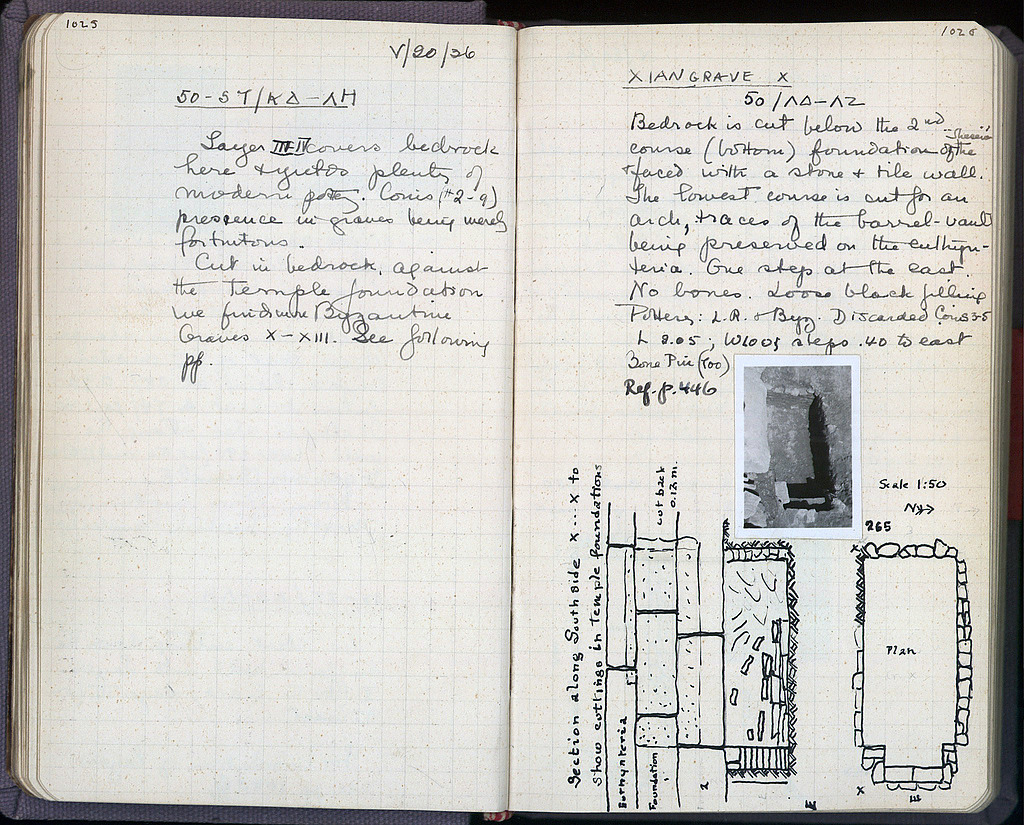 1025
V/20/36
50-ST/ΚΔ-ΛΗ
Layer III-IV covers bedrock
here & yields plenty of
modern pottery. Coins (#2-9)
prescence in graves being merely
fortuitous.
Cut in bedrock, against
the temple foundation
we find Byzantine
Graves X-XIII. See following
pp.
1026
XIAN GRAVE X
50/ΛΔ-ΛΖ
Bedrock is cut below the 2nd
course (bottom) foundation of the
& faced with a stone & tile wall.
The lowest course is cut for an
arch, traces of the barrel-vault
being preserved on the euthyn-
teria. One steps at the east.
No bones. Loose black filling
Pottery: L.R. & Byz. Discarded Coins 3-5
L 2.05; W 1.00; steps .40 to east
Bone Pin (700)
Ref. p. 446
Scale 1:50
N
265
x
Plan
x
E
Section along South side x...x to
show cuttings in temple foundations
cut back
0.12 m.
Euthynteria
Foundation 1
2
E